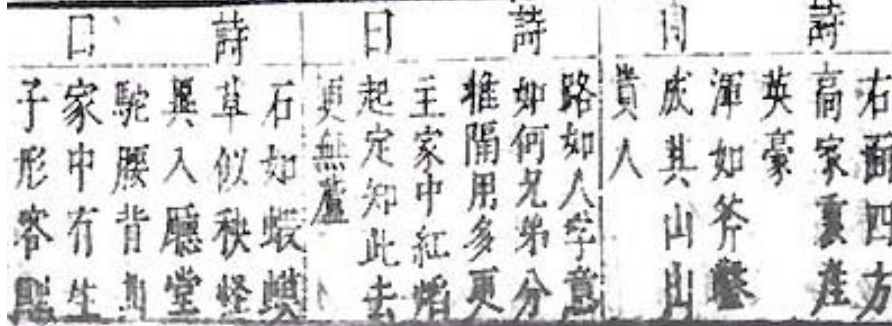 詩曰
右面四方
高家裏産
英豪
渾如斧鑿
成其山山
貴人
詩曰
路如人字意
如何兄弟分
推隔用多更
主家中紅焰
起定知此去
更無蘆
詩曰
石如蝦蟆
草似秧怪
異入廳堂
駝腰背
家中有生
子形容